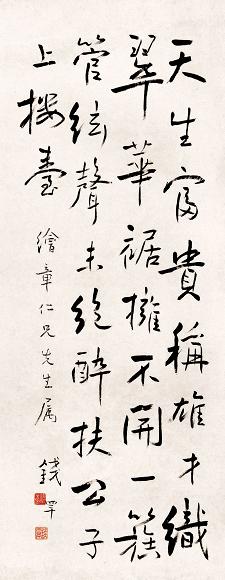 天生富貴稱雄才織
翠華裾擁不開一簇
管絃聲未絕醉扶公子
上樓臺
繪章仁兄先生属
錢罕